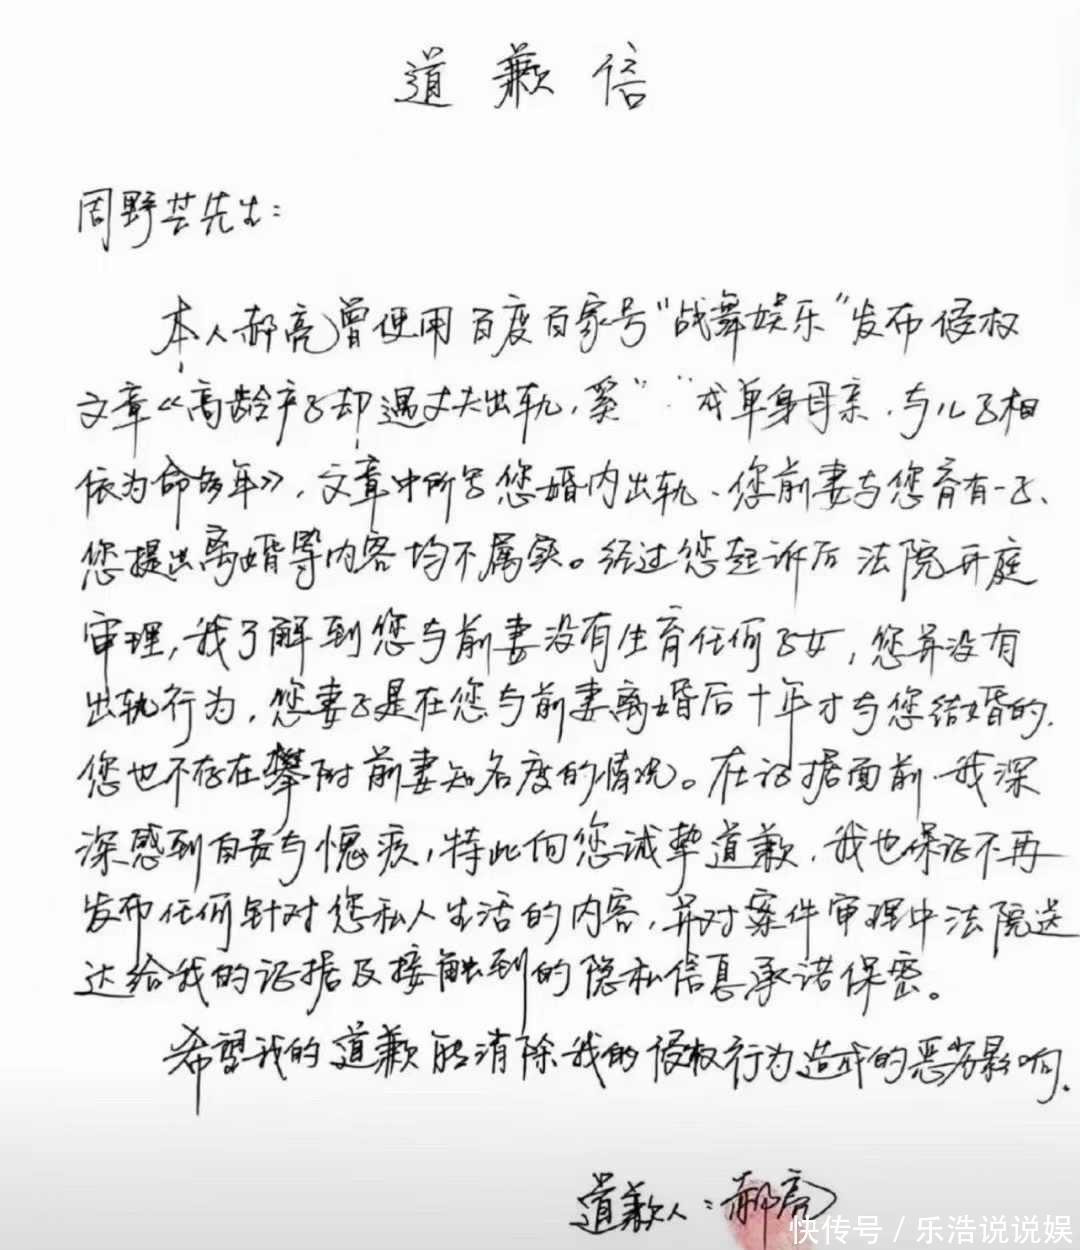 道歉信
周野芒先生：
本人郝亮曾使用百度百家号“战舞娱乐”发布侵权
文章《高龄产子却遇丈夫出轨，奚" "成单身母亲，与儿子相
依为命多年》，文章中所写您婚内出轨、您前妻与您育有一子、
您提出离婚等内容均不属实。经过您起诉后法院开庭
审理，我了解到您与前妻没有生育任何子女，您并没有
出轨行为，您妻子是在您与前妻离婚后十年才与您结婚的，
您也不存在攀附前妻知名度的情况。在证据面前，我深
深感到自责与愧疚，特此向您诚挚道歉，我也保证不再
发布任何针对您私人生活的内容，并对案件审理中法院送
达给我的证据及接触到的隐私信息承诺保密。
希望我的道歉能消除我的侵权行为造成的恶劣影响。
道歉人：郝亮
快传号 / 乐浩说说娱